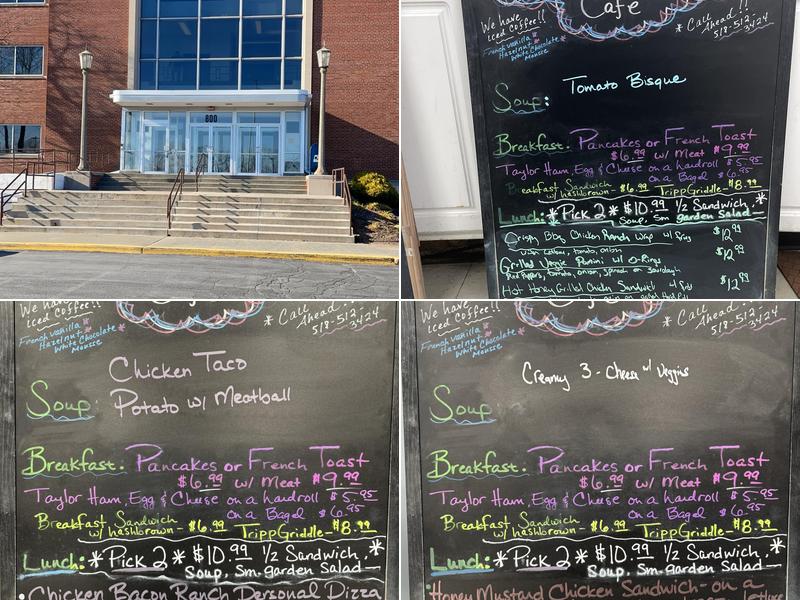 800
Cafe
We have
iced coffee!!
French vanilla
Hazelnut
White Chocolate
Mousse
* Call
Ahead!!
518-512-
3424
Soup:
Tomato Bisque
Breakfast: Pancakes or French Toast
$6.99 w/ Meat $9.99
Taylor Ham, Egg & Cheese on a hardroll $5.95
on a Bagel $6.95
Breakfast Sandwich
w/ hashbrown - $6.99 TrippGriddle - $8.99
Lunch: *Pick 2* $10.99 1/2 Sandwich, *
Soup, Sm garden Salad —
Crispy BBQ Chicken Ranch Wrap w/ fries $12.99
tomato, onion
Grilled Veggie Panini w/ O-Rings $12.99
Red Peppers, tomato, onion, spread on Sourdough
Hot Honey Grilled Chicken Sandwich w/ fries $12.99
We have
iced coffee!!
French Vanilla
Hazelnut
White Chocolate
Mousse
* Call
Ahead!!
518-512-
3424
Chicken Taco
Soup: Potato w/ Meatball
Breakfast: Pancakes or French Toast
$6.99 w/ Meat $9.99
Taylor Ham, Egg & Cheese on a hardroll $5.95
on a Bagel $6.95
Breakfast Sandwich
w/ hashbrown - $6.99 TrippGriddle - $8.99
Lunch: *Pick 2* $10.99 1/2 Sandwich, *
Soup, Sm. garden Salad —
• Chicken Bacon Ranch Personal Pizza
We have
iced coffee!!
French Vanilla
Hazelnut
White Chocolate
Mousse
* Call
Ahead!!
518-512-
3424
Creamy 3 - Cheese w/ Veggies
Soup:
Breakfast: Pancakes or French Toast
$6.99 w/ Meat $9.99
Taylor Ham, Egg & Cheese on a hardroll $5.95
on a Bagel $6.95
Breakfast Sandwich
w/ hashbrown - $6.99 TrippGriddle - $8.99
Lunch: *Pick 2* $10.99 1/2 Sandwich, *
Soup, Sm. garden Salad —
• Honey Mustard Chicken Sandwich - on a
lettuce